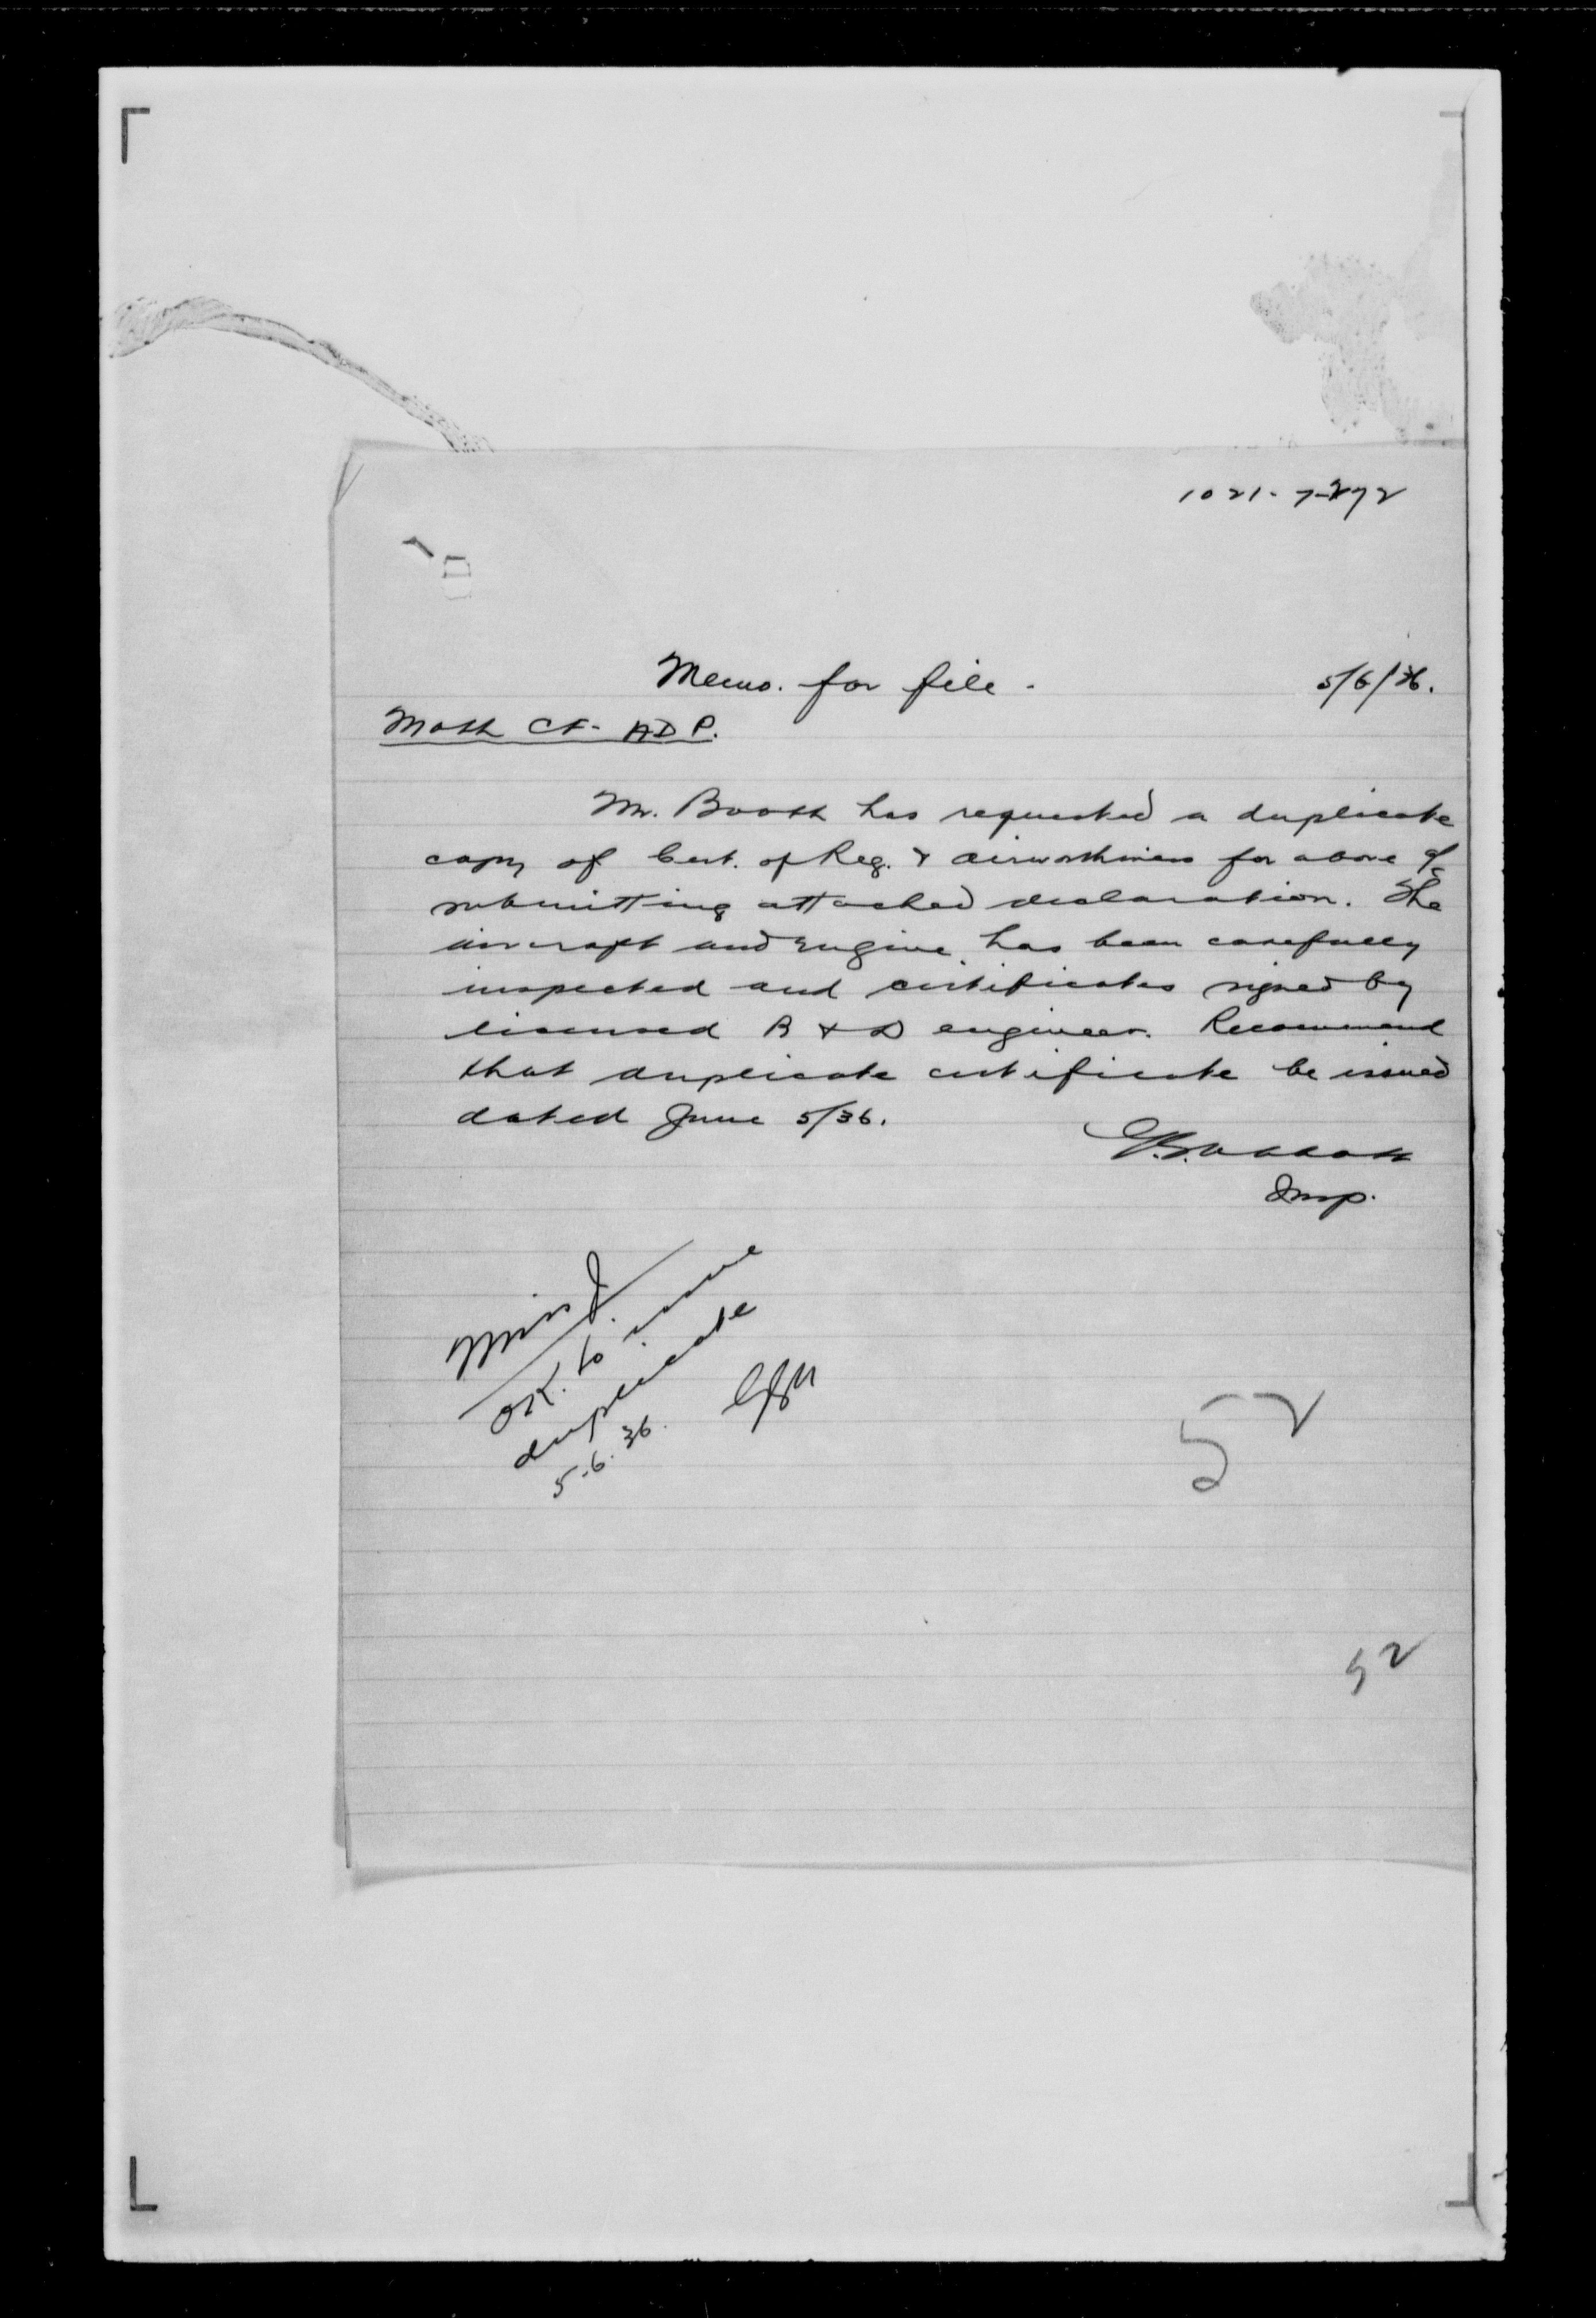 1021-7-272
Memo. for file -
5/6/36.
Moth CF-ADP.
Mr. Booth has requested a duplicate
copy of Cert. of Reg. & airworthiness for above A/C
submitting attached declaration. The
aircraft and engine, has been carefully
inspected and certificates signed by
licensed B & D engineer. Recommend
that duplicate certificate be issued
dated June 5/36.
Insp.
Miss J.
OK. to issue
duplicate
5-6-36.
52
52